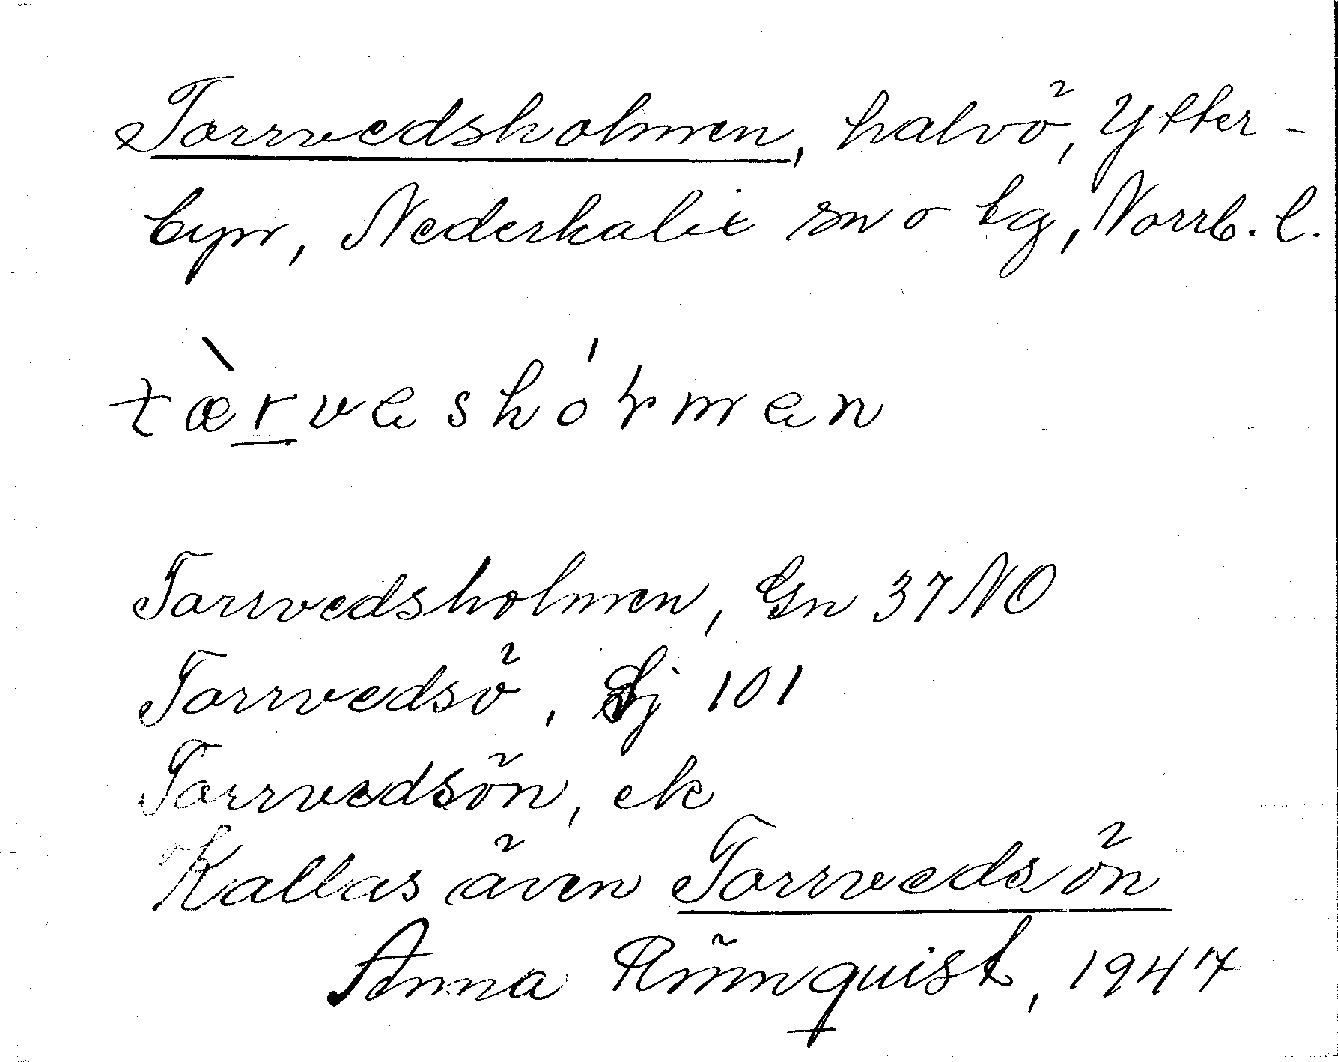 Torrvedsholmen, halvö, Ytter-
byn, Nederkalix sn o tg, Norrb. l.
tæ̀rvesho̍ɽmen
Torrvedsholmen, Gn 37 NO
Torrvedsö, Sj 101
Torrvedsön, ek
Kallas även Torrvedsön
Anna Rönnquist, 1947